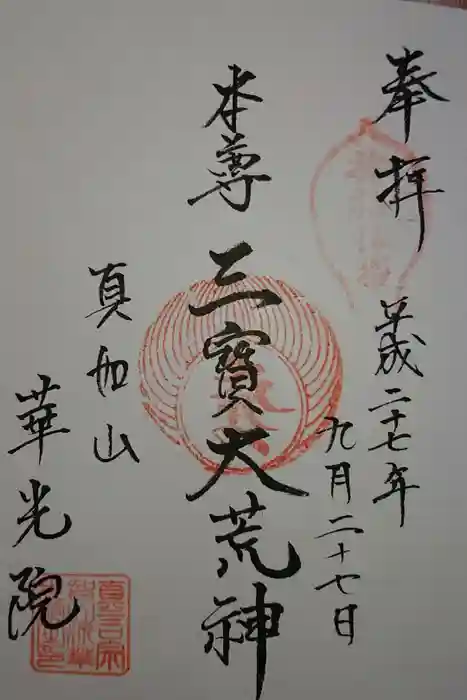 奉拝
平成二十七年
九月二十七日
本尊
三寳大荒神
真如山
華光院